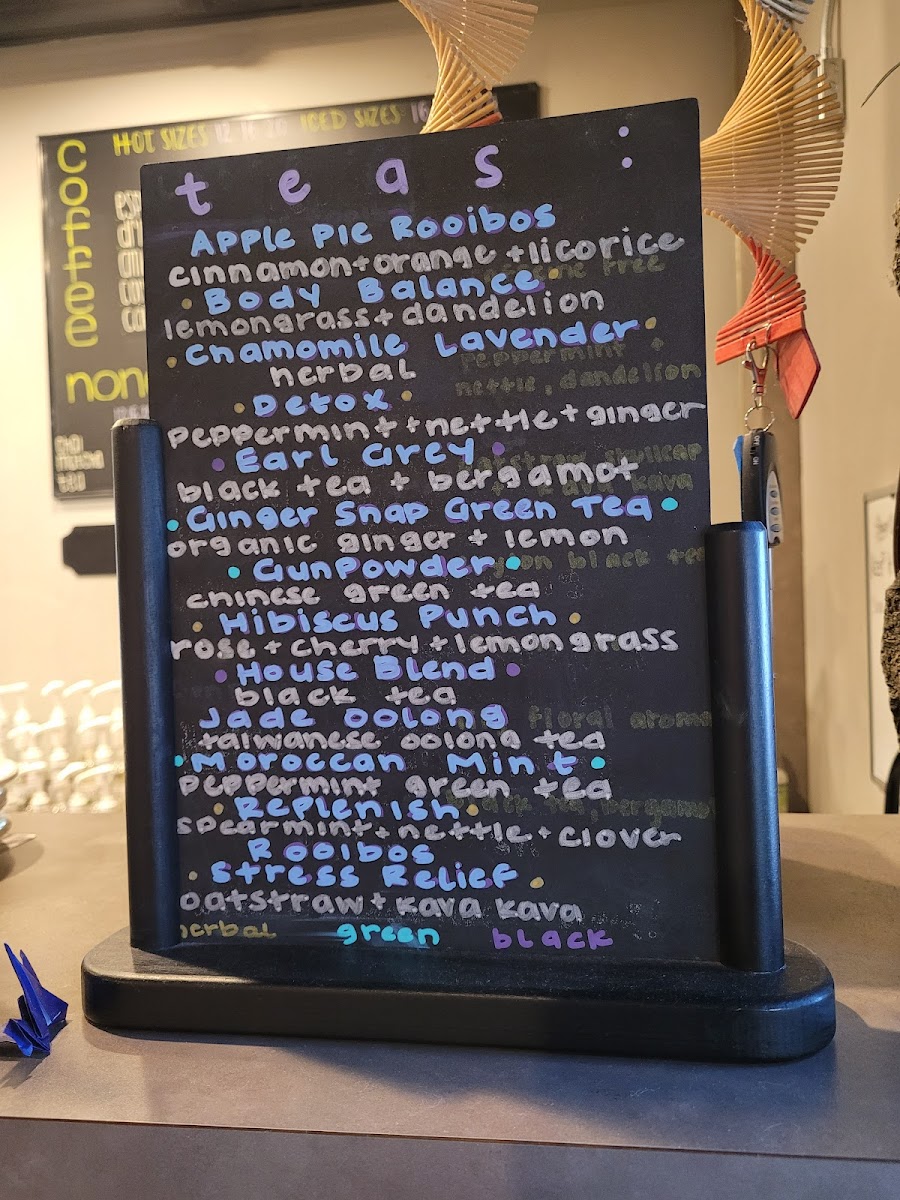 HOT SIZES 12 16 20 ICED SIZES 16
coffee
non
teas:
Apple Pie Rooibos
cinnamon+orange+licorice
Body Balance
lemongrass+dandelion
Chamomile Lavender
herbal
Detox
peppermint+nettle+ginger
Earl Grey
black tea + bergamot
Ginger Snap Green Tea
organic ginger + lemon
Gunpowder
chinese green tea
Hibiscus Punch
rose+cherry+lemongrass
House Blend
black tea
Jade Oolong
taiwanese oolong tea
Moroccan Mint
peppermint green tea
Replenish
spearmint+nettle+clover
Rooibos
Stress Relief
oatstraw+kava kava
herbal green black
peppermint +
nettle, dandelion
skullcap
kava
black tea
floral aroma